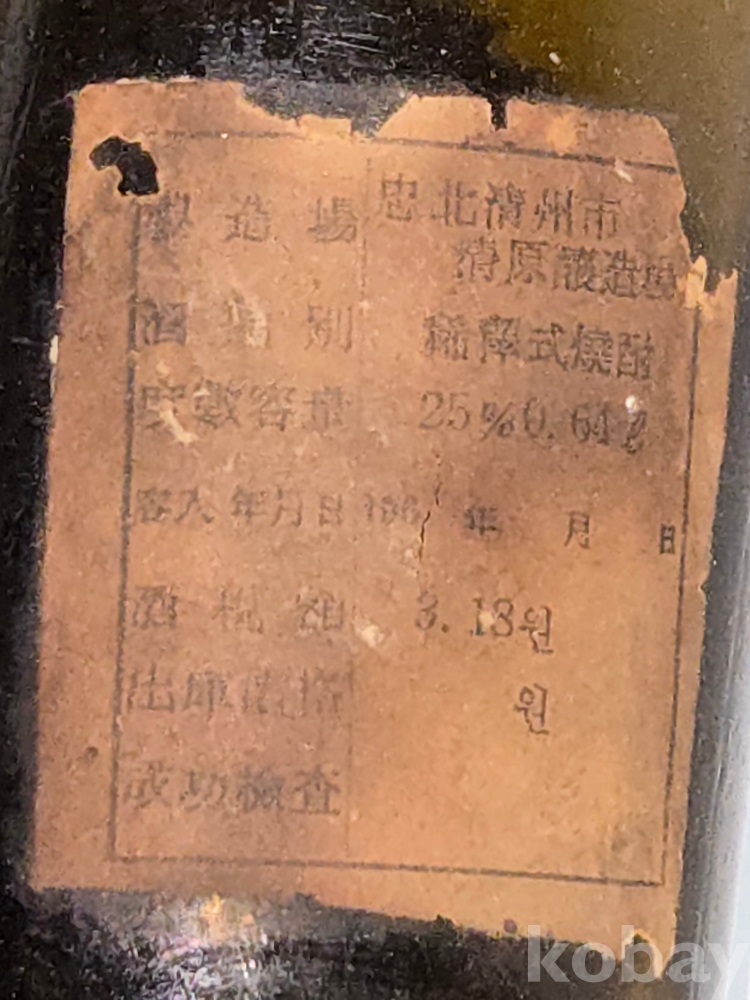 製造場 忠北清州市
清原釀造場
酒類別 稀釋式燒酎
度數容量 25% 0.64ℓ
容入年月日 196 年 月 日
酒稅額 3.18원
出庫 원
成功檢査
kobay